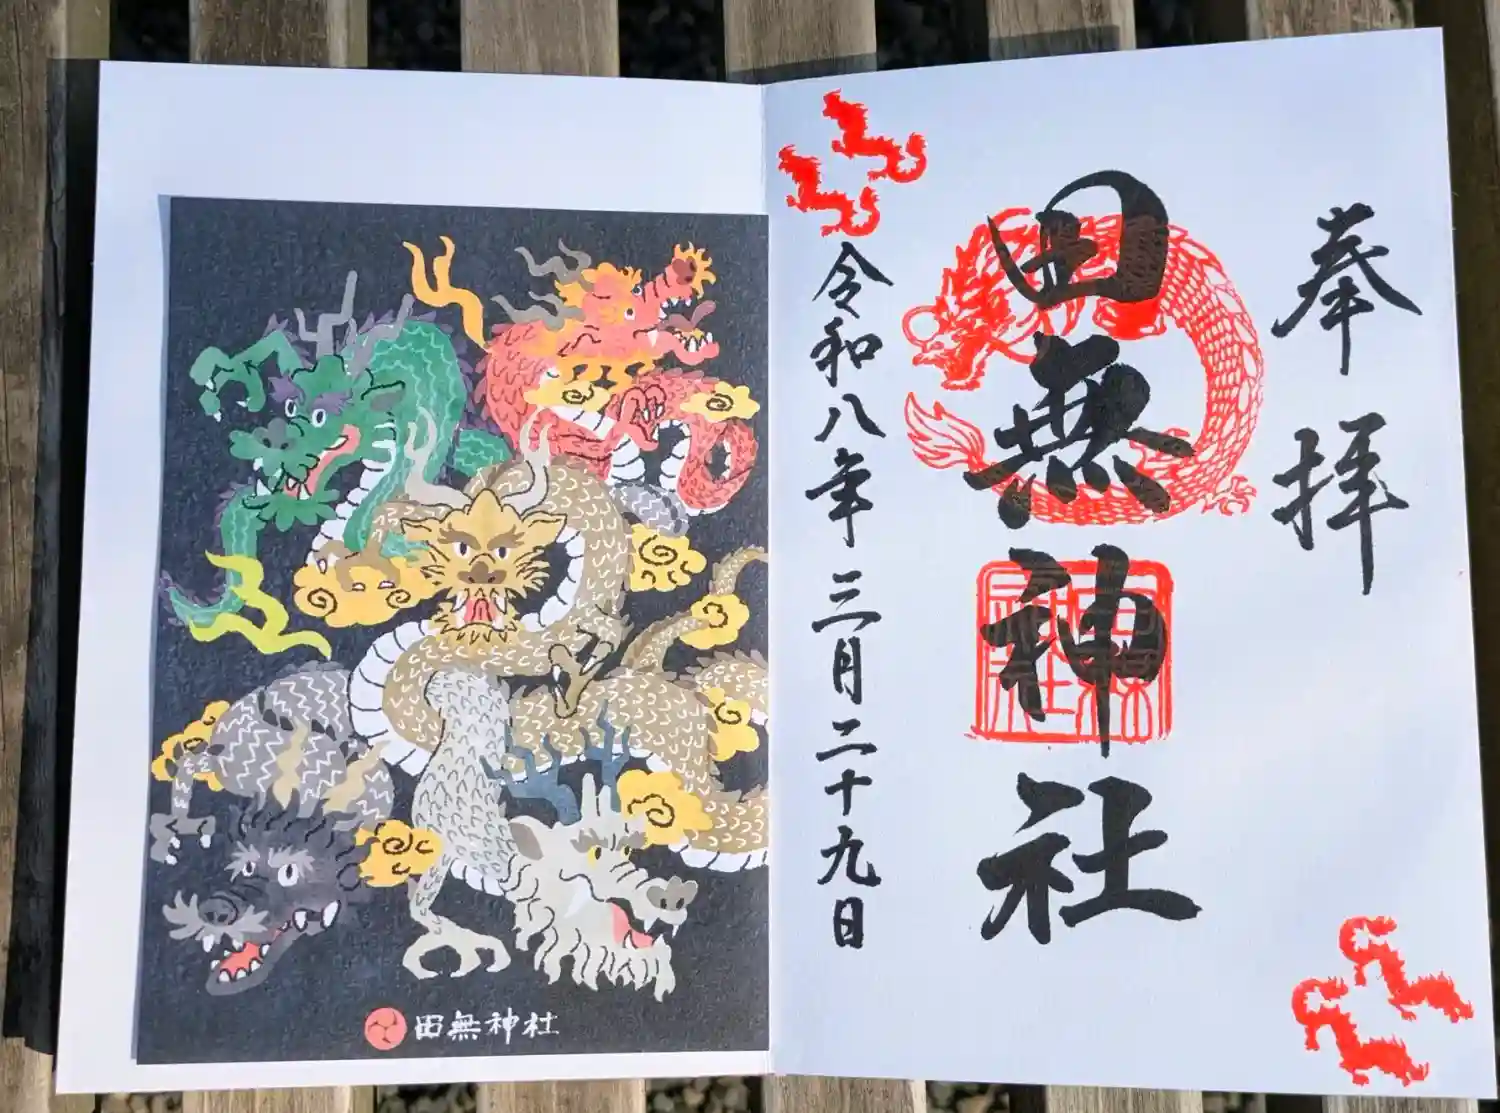 奉拝
田無神社
令和八年三月二十九日
田無神社